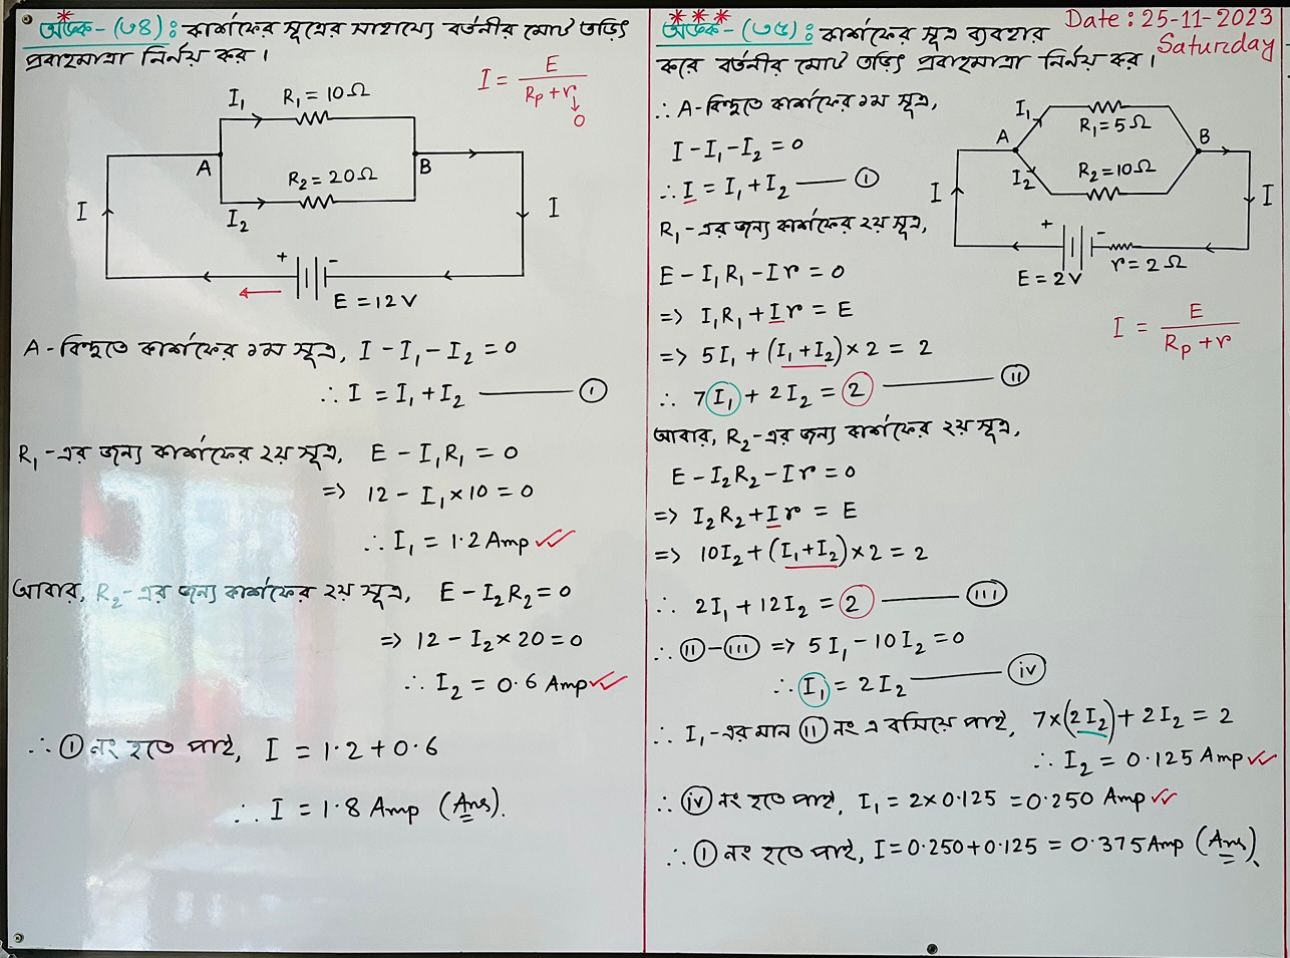 অংক-(৩৪): কার্শফের সূত্রের সাহায্যে বর্তনীর মোট তড়িৎ
প্রবাহমাত্রা নির্নয় কর।
I = E / (Rp + r)
0
I₁ R₁ = 10Ω
A
B
R₂ = 20Ω
I₂
I
I
+ -
E = 12V
A-বিন্দুতে কার্শফের ১ম সূত্র, I - I₁ - I₂ = 0
∴ I = I₁ + I₂ —— (i)
R₁-এর জন্য কার্শফের ২য় সূত্র, E - I₁R₁ = 0
=> 12 - I₁ × 10 = 0
∴ I₁ = 1.2 Amp
আবার, R₂-এর জন্য কার্শফের ২য় সূত্র, E - I₂R₂ = 0
=> 12 - I₂ × 20 = 0
∴ I₂ = 0.6 Amp
∴ (i) নং হতে পাই, I = 1.2 + 0.6
∴ I = 1.8 Amp (Ans).
*** Date: 25-11-2023
Saturday
অংক-(৩৫): কার্শফের সূত্র ব্যবহার
করে বর্তনীর মোট তড়িৎ প্রবাহমাত্রা নির্নয় কর।
∴ A-বিন্দুতে কার্শফের ১ম সূত্র,
I - I₁ - I₂ = 0
∴ I = I₁ + I₂ —— (i)
R₁-এর জন্য কার্শফের ২য় সূত্র,
E - I₁R₁ - Ir = 0
=> I₁R₁ + Ir = E
=> 5I₁ + (I₁ + I₂) × 2 = 2
∴ 7I₁ + 2I₂ = 2 —— (ii)
I₁
R₁ = 5Ω
A
B
I₂
R₂ = 10Ω
I
I
+ -
E = 2V
r = 2Ω
I = E / (Rp + r)
আবার, R₂-এর জন্য কার্শফের ২য় সূত্র,
E - I₂R₂ - Ir = 0
=> I₂R₂ + Ir = E
=> 10I₂ + (I₁ + I₂) × 2 = 2
∴ 2I₁ + 12I₂ = 2 —— (iii)
∴ (ii) - (iii) => 5I₁ - 10I₂ = 0
∴ I₁ = 2I₂ —— (iv)
∴ I₁-এর মান (ii) নং এ বসিয়ে পাই, 7 × (2I₂) + 2I₂ = 2
∴ I₂ = 0.125 Amp
∴ (iv) নং হতে পাই, I₁ = 2 × 0.125 = 0.250 Amp
∴ (i) নং হতে পাই, I = 0.250 + 0.125 = 0.375 Amp (Ans).